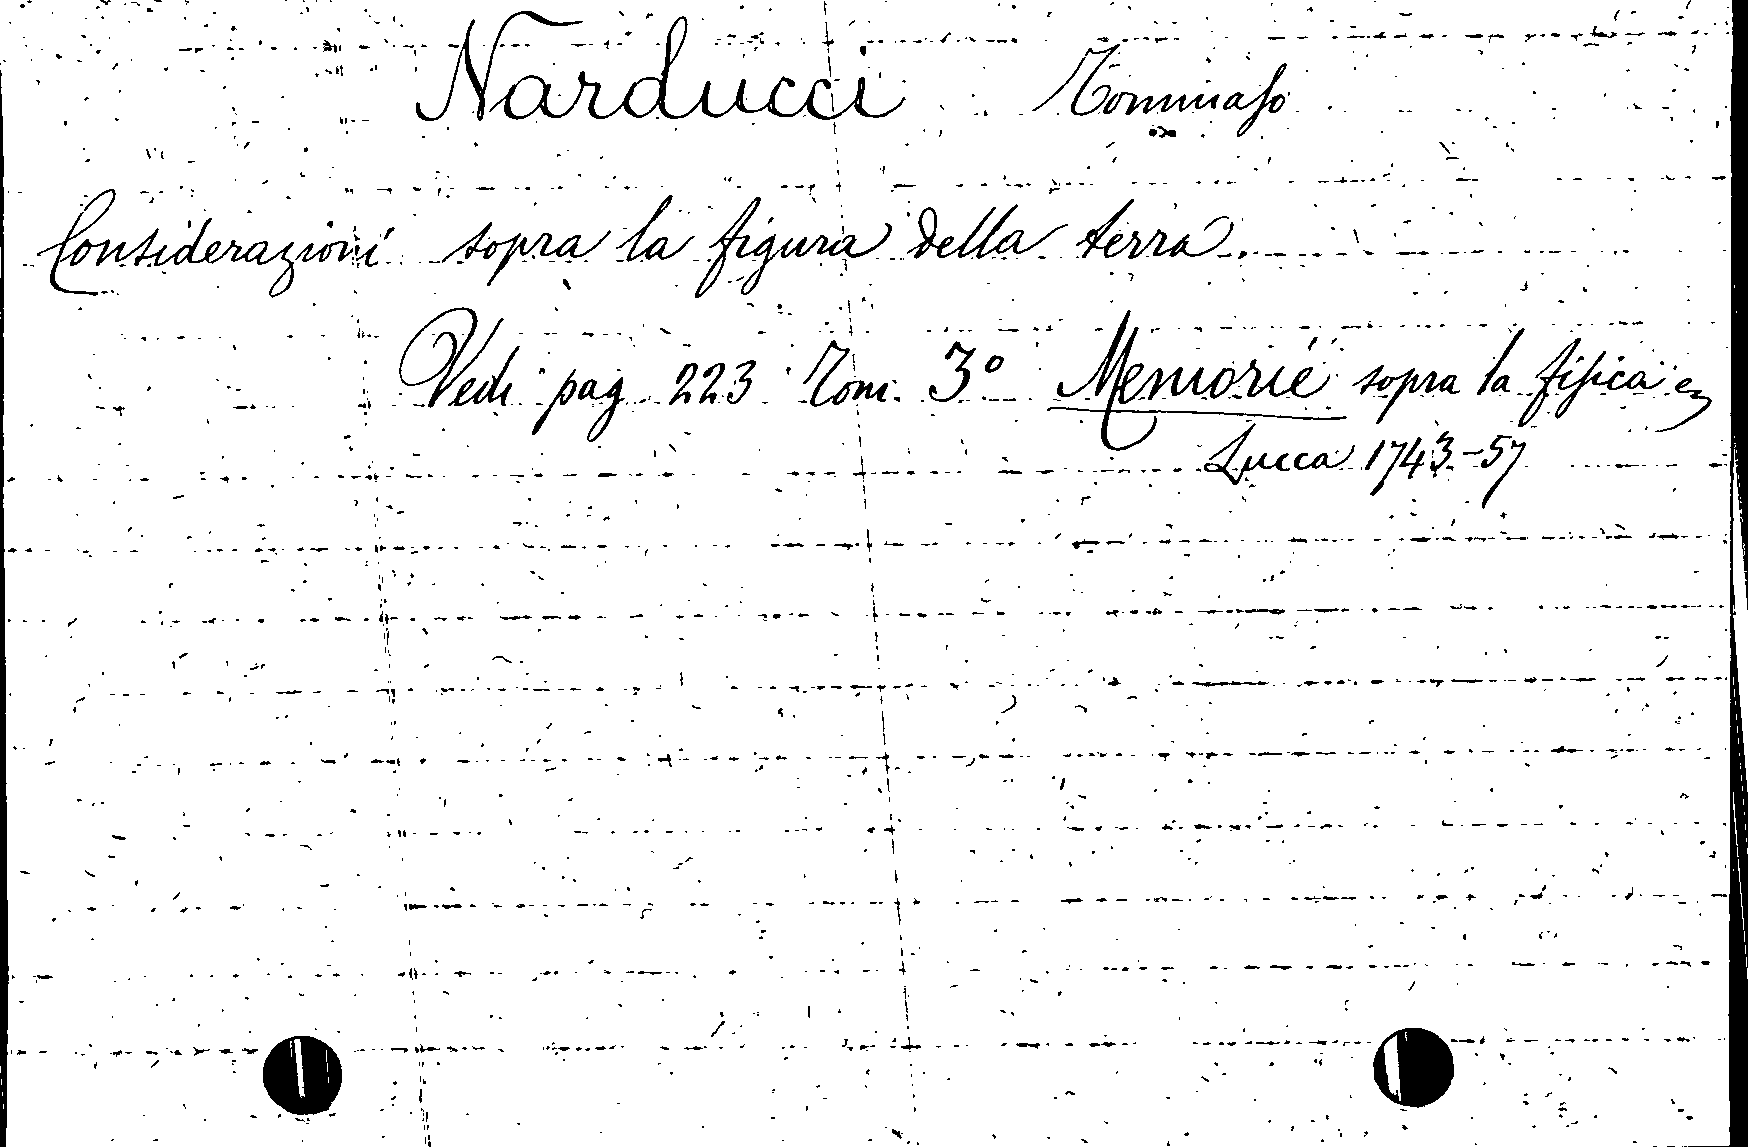 Narducci Tommaso
Considerazioni sopra la figura della terra.
Vedi pag 223 Tom. 3º Memorie sopra la fisica ec
Lucca 1743-57